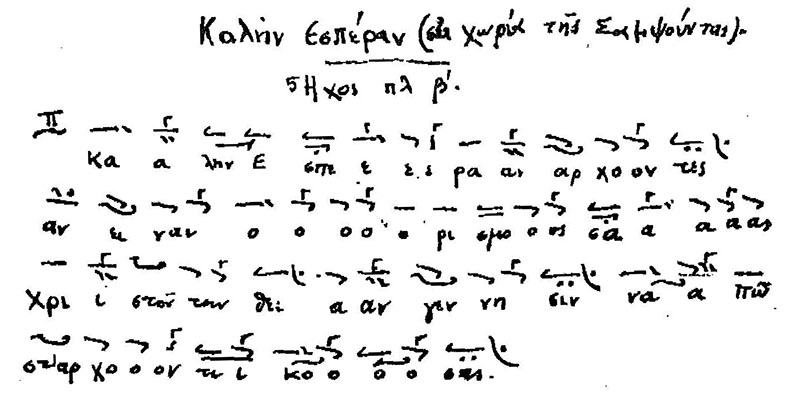 Καλήν Εσπέραν (στα χωριά της Σαμψούντας).
Ήχος πλ β΄.
Κα α λην Ε σπε ε ε ε ρα αν αρ χο ον τες
αν ει ναι ο ο ο ο ο ρι σμο ο ος σα α α α ας
Χρι ι στού την θεί α αν γεν νη σιν να α πω
στ' αρ χο ο ον τι ι κο ο ο ο σας.